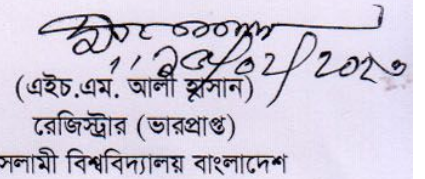 (এইচ.এম. আলী হাসান)
রেজিস্ট্রার (ভারপ্রাপ্ত)
সলামী বিশ্ববিদ্যালয় বাংলাদেশ